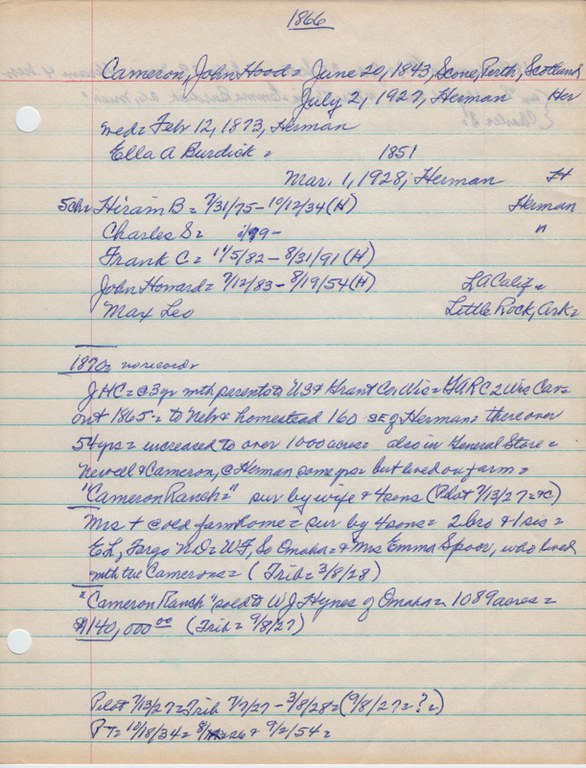 1866
Cameron, John Hood = June 20, 1843, Scone, Perth, Scotland
July 2, 1927, Herman Her
med = Feb 12, 1873, Herman
Ella A Burdick = 1851
Mar. 1, 1928; Herman
5ch = Hiram B = 7/31/75 - 10/12/34 (H) Herman
Charles S = "
Frank C = 11/5/82 - 8/31/91 (H)
John Howard = 7/12/83 - 8/19/54 (H) LA Calif =
Max Leo Little Rock, Ark =
1870 = no record =
JHC = @ 3yr with parents to US & Grant Co Wis = GAR C 2 Wis Cav =
out 1865 = to Nebr & homestead 160 SE of Herman = there over
54 yrs = increased to over 1000 acres = also in General Store =
Newell & Cameron, @ Herman some yrs = but lived on farm =
"Cameron Ranch =" sur by wife & 4 sons (Pilot 7/13/27 =
Mrs + @ old farm home = sur by 4 sons = 2 bro & 1 sis =
E L, Fargo ND = WF, So Omaha = & Mrs Emma Spoor, who lived
with the Camerons = (Trib = 3/8/28)
"Cameron Ranch" sold to W J Hynes of Omaha = 1089 acres =
$140,000.00 (Trib = 9/8/27)
Pilot 7/13/27 = Trib 7/7/27 - 3/8/28 = (9/8/27 = ? =)
PT = 10/18/34 = & 9/2/54 =